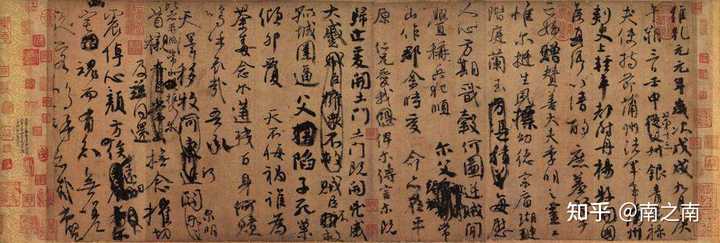 維乾元元年歲次戊戌九月庚
午朔三日壬申第十三叔銀青光祿
夫使持節蒲州諸軍事蒲州
刺史上輕車都尉丹楊縣開國
侯真卿以清酌庶羞祭于
亡姪贈贊善大夫季明之靈曰
惟爾挺生夙標幼德宗廟瑚璉
階庭蘭玉每慰
人心方期戩穀何圖逆賊閒
釁稱兵犯順爾父竭誠常
山作郡余時受命亦在平
原仁兄愛我俾爾傳言爾既
歸止爰開土門土門既開凶威
大蹙賊臣不救
孤城圍逼父陷子死巢
傾卵覆天不悔禍誰為
荼毒念爾遘殘百身何贖
嗚呼哀哉吾承
天澤移牧河關泉明
比者再陷常山攜爾
首櫬及茲同還撫念摧切
震悼心顏方俟遠日
魂而有知無嗟
久客嗚呼哀哉尚饗
知乎 @南之南